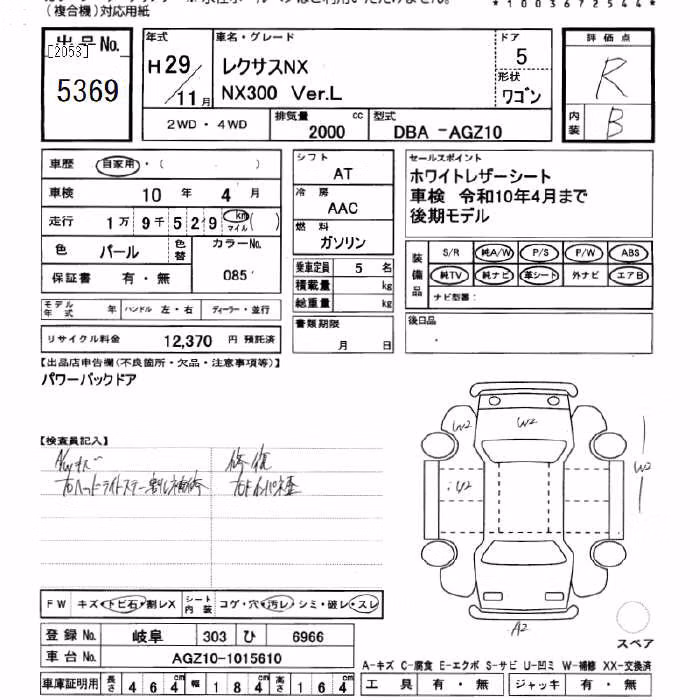 (複合機)対応用紙
*1003672544*
出品No.
[2053]
5369
年式
H29/11月
車名・グレード
レクサスNX
NX300 Ver.L
ドア
5
形状
ワゴン
評価点
R
内装
B
2WD・4WD
排気量
2000 cc
型式
DBA -AGZ10
車歴 自家用・( )
車検 10 年 4 月
走行 1万9千529 km マイル ( )
色 パール 色替 カラーNo. 085
保証書 有・無
モデル年式 年 ハンドル 左・右 ディーラー・並行
リサイクル料金 12,370 円 預託済
シフト
AT
冷房
AAC
燃料
ガソリン
乗車定員 5 名
積載量 kg
総重量 kg
書類期限
月 日
セールスポイント
ホワイトレザーシート
車検 令和10年4月まで
後期モデル
装備品
S/R 純A/W P/S P/W ABS
純TV 純ナビ 革シート 外ナビ エアB
ナビ型番:
後日品
【出品店申告欄(不良箇所・欠品・注意事項等)】
パワーバックドア
【検査員記入】
修復
右ヘッドライトステー割れ補修
FW キズ・トビ石・割レX シート内装 コゲ・穴・汚レ・シミ・破レ・スレ
登録No. 岐阜 303 ひ 6966
車台No. AGZ10-1015610
車庫証明用 長さ 464cm 幅 184cm 高さ 164cm
W2
W2
W2
W2
A2
スペア
A-キズ C-腐食 E-エクボ S-サビ U-凹ミ W-補修 XX-交換済
工具 有・無 ジャッキ 有・無